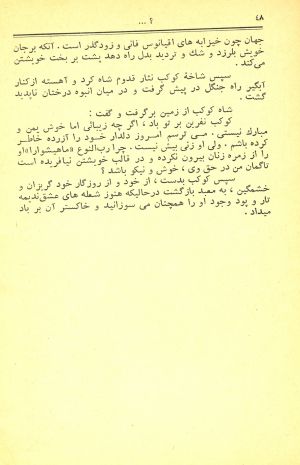 ۴۸
؟ ...
جهان چون خیزابه های اقیانوس فانی و زودگذر است . آنکه برجان
خویش بلرزد و شك و تردید بدل راه دهد پشت بر بخت خویشتن
می‌کند .
سپس شاخهٔ کوکب نثار قدوم شاه کرد و آهسته از کنار
آبگیر راه جنگل در پیش گرفت و در میان انبوه درختان ناپدید
گشت .
شاه کوکب از زمین برگرفت و گفت :
کوکب نفرین بر تو باد ، اگر چه زیبائی اما خوش یمن و
مبارك نیستی . می ترسم امروز دلدار خود را آزرده خاطر
کرده باشم . ولی او زنی بیش نیست . چرا رب‌النوع «ماهیشوارا» او
را از زمره زنان بیرون نکرده و در قالب خویشتن نیافریده است
تاگمان من در حق وی ، خوش و نیکو باشد ؟
سپس کوکب بدست ، از خود و از روزگار خود گریزان و
خشمگین ، به معبد بازگشت درحالیکه هنوز شعله های عشق ندیمه
تار و پود وجود او را همچنان می سوزانید و خاکستر آن بر باد
میداد .